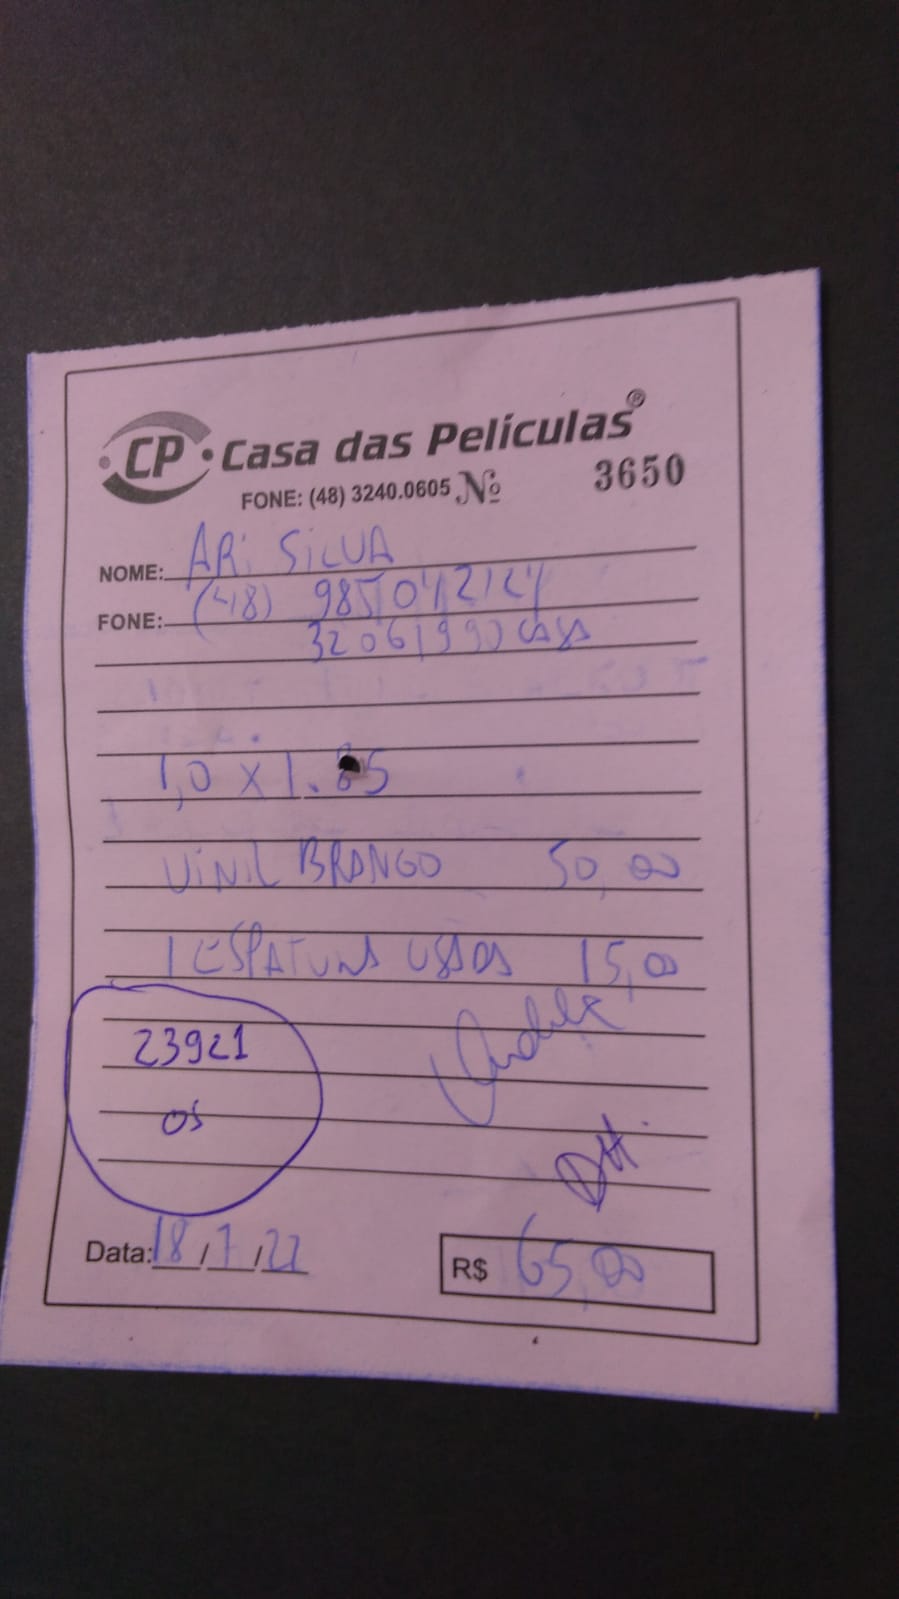 CP Casa das Películas®
FONE: (48) 3240.0605 Nº 3650
NOME: ARi SiLVA
FONE: (48) 985042124
32061990 CASA
1,0 x 1.85
ViNiL BRANCO 50,00
1 ESPATULA USADA 15,00
23921
OS
Data: 18/7/22
R$ 65,00